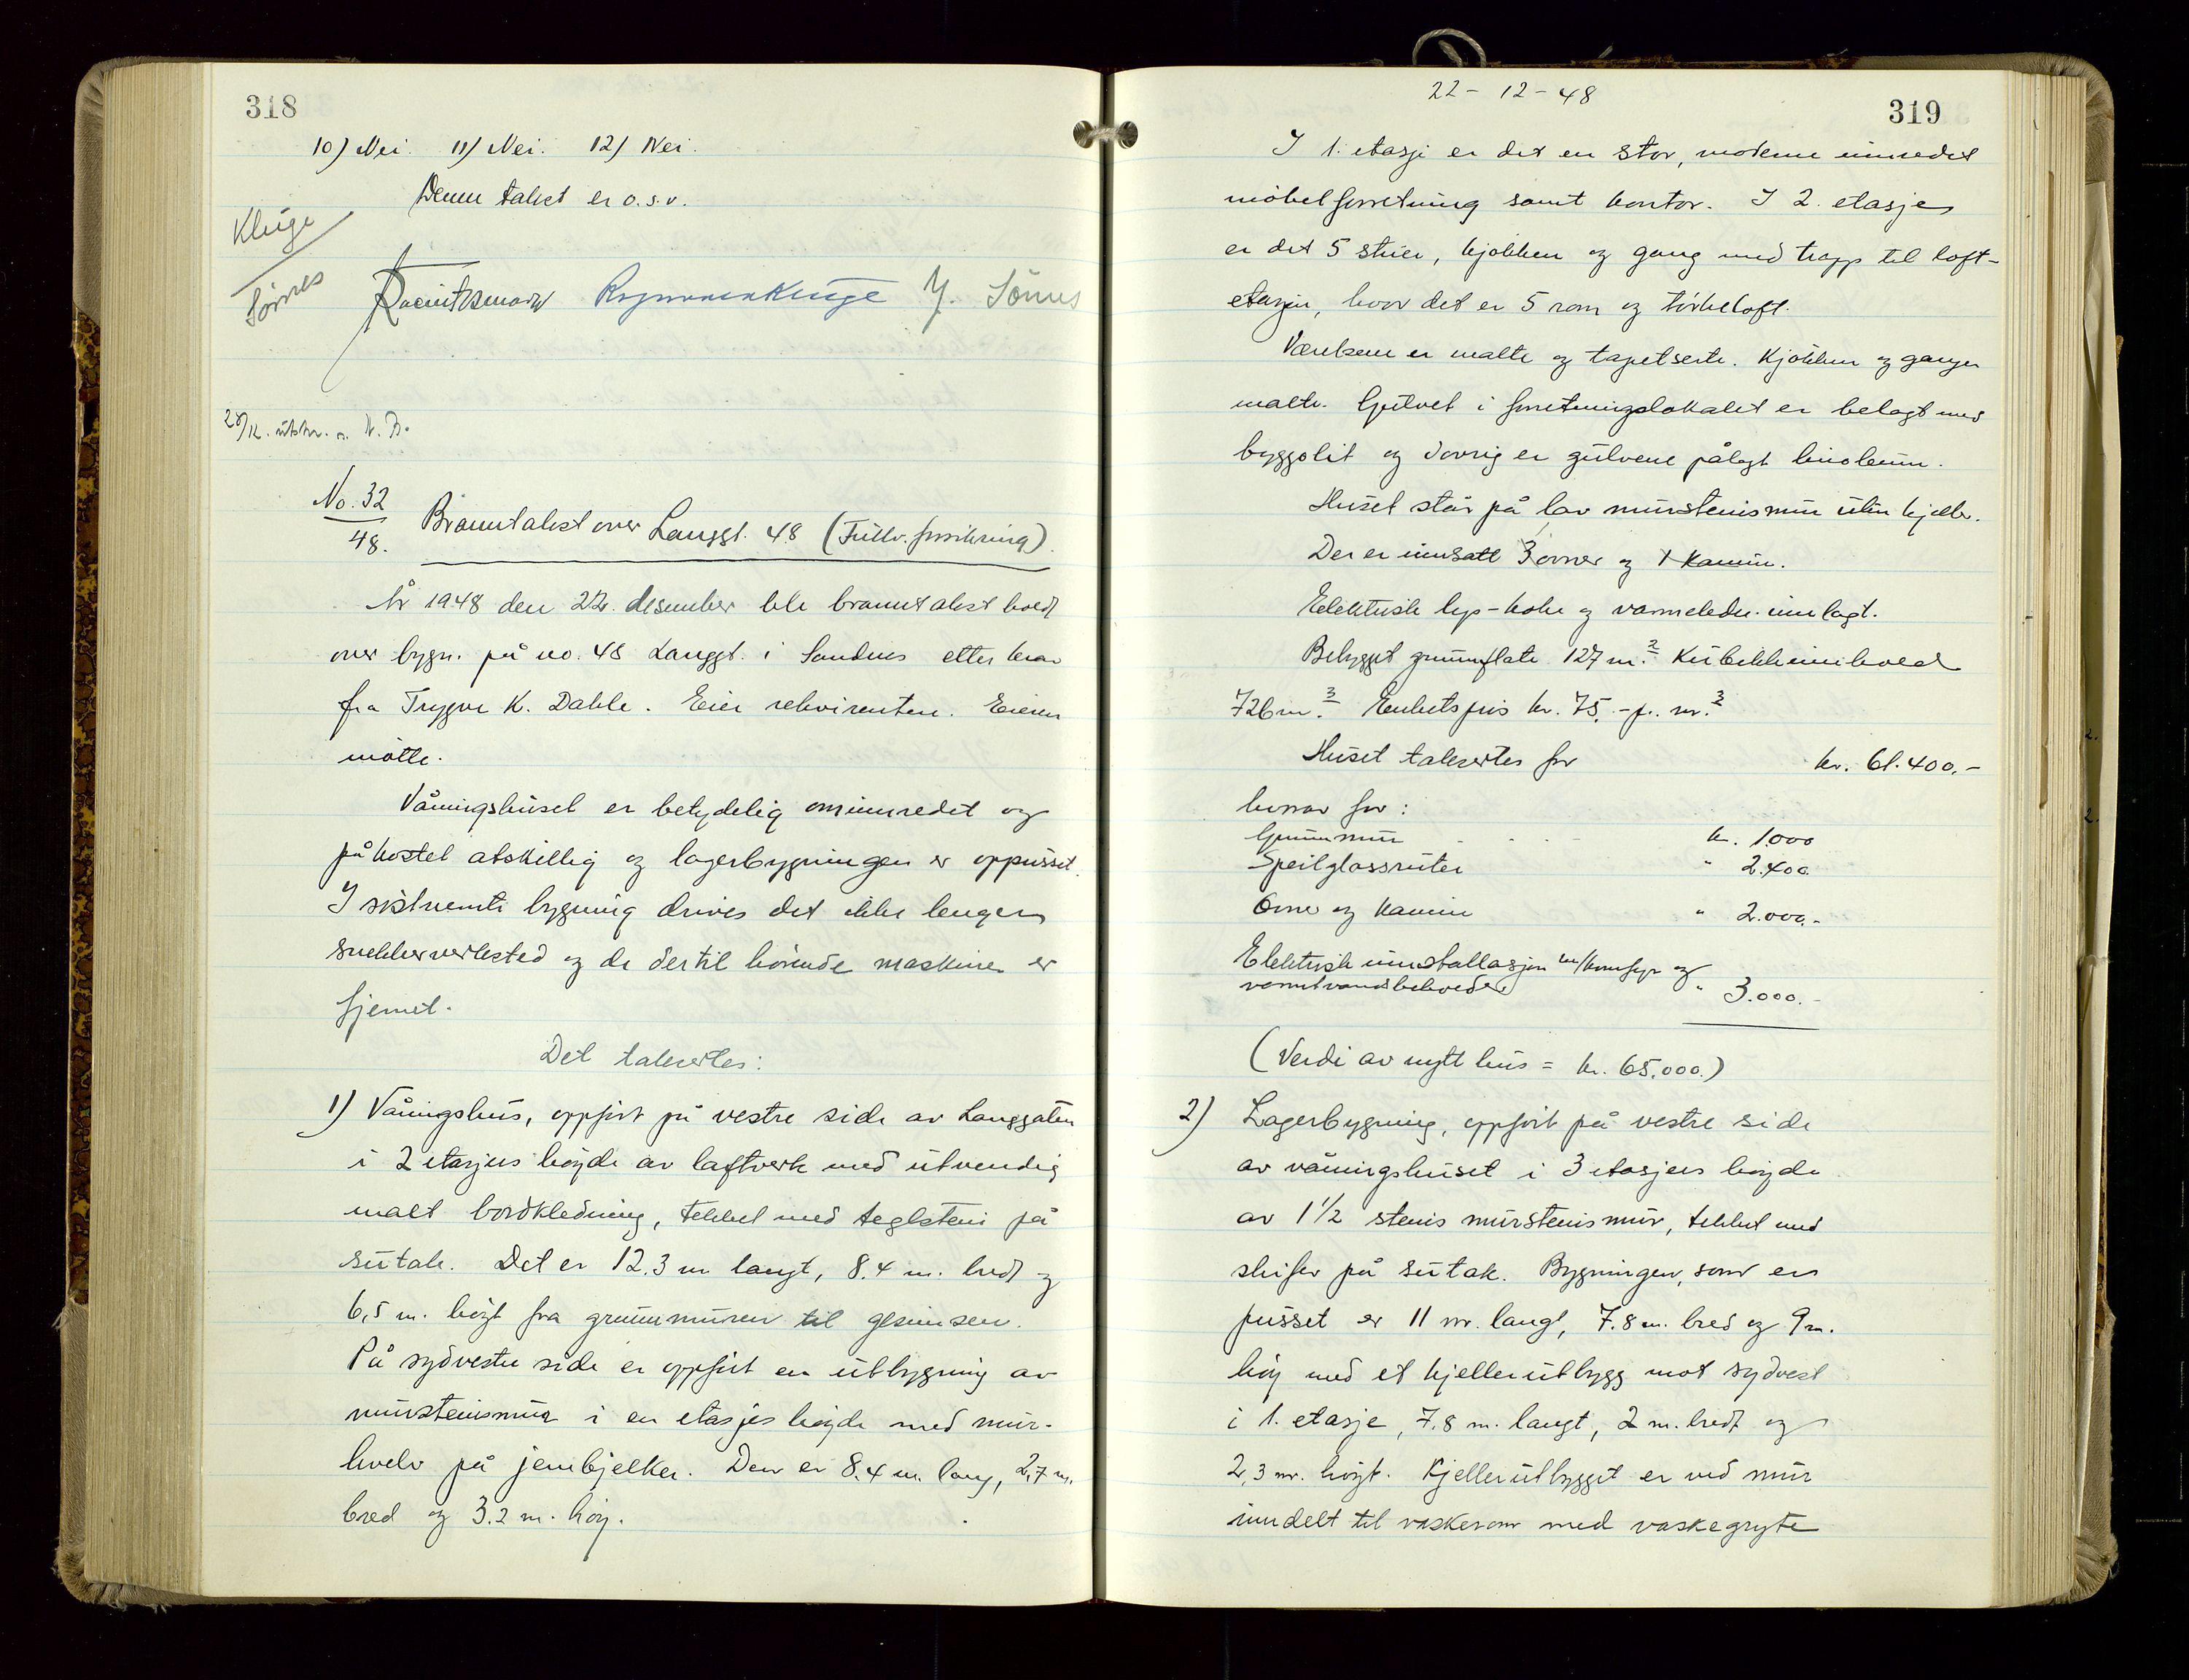 318
10) Nei. 11) Nei. 12) Nei.
Denne takst er o.s.v.
Kluge
Sörnes
Kluge J. Sörnes
28/12. utskr. N. B.
No. 32
48.
Branntakst over Langgt. 48 (Fullv. forsikring).
År 1948 den 22. desember ble branntakst holdt
over bygn. på no. 48 Langgt. i Sandnes etter krav
fra Trygve K. Dahle. Eier rekvirenten. Eieren
mötte.
Våningshuset er betydelig ominnredet og
påkostet atskillig og lagerbygningen er oppusset.
I sistnevnte bygning drives det ikke lenger
snekkerverksted og de dertil hörende maskiner er
fjernet.
Det taksertes:
1) Våningshus, oppfört på vestre side av Langgaten
i 2 etasjers höyde av laftverk med utvendig
malt bordkledning, tekket med teglsten på
sutak. Det er 12.3 m langt, 8.4 m. bredt og
6,5 m. höyt fra grunnmuren til gesimsen.
På sydvestre side er oppfört en utbygning av
murstensmur i en etasjes höyde med mur-
hvelv på jernbjelker. Den er 8.4 m. lang, 2,7 m.
bred og 3.2 m. höy.
22-12-48
319
I 1. etasje er det en stor, moderne innredet
möbelforretning samt kontor. I 2. etasje
er det 5 stuer, kjökken og gang med trapp til loft-
etasjen, hvor det er 5 rom og törkeloft.
Værelsene er malte og tapetserte. Kjökken og ganger
malte. Gulvet i forretningslokalet er belagt med
byggolit og iövrig er gulvene pålagt linoleum.
Huset står på lav murstensmur uten kjeller.
Der er innsatt 3 ovner og 1 kamin.
Elektrisk lys-koke og varmeledn. innlagt.
Bebygget grunnflate 127 m.² Kubikkinnhold
726 m.³ Enhetspris kr. 75,- p. m.³
Huset takseres for kr. 61.400.-
hvorav for:
Grunnmur kr. 1000
Speilglassruter " 2.400.
Ovner og kamin " 2.000.-
Elektrisk innstallasjon m/komfyr og
varmtvandsbeholder " 3.000.-
(Verdi av nytt hus = kr. 65.000.)
2) Lagerbygning, oppfört på vestre side
av våningshuset i 3 etasjers höyde
av 1½ stens murstensmur, tekket med
skifer på sutak. Bygningen, som er
pusset er 11 m. langt, 7.8 m. bred og 9 m.
höy med et kjellerutbygg mot sydvest
i 1. etasje, 7.8 m. langt, 2 m. bredt og
2,3 m. höyt. Kjellerutbygget er ved mur
inndelt til vaskerom med vaskegryte